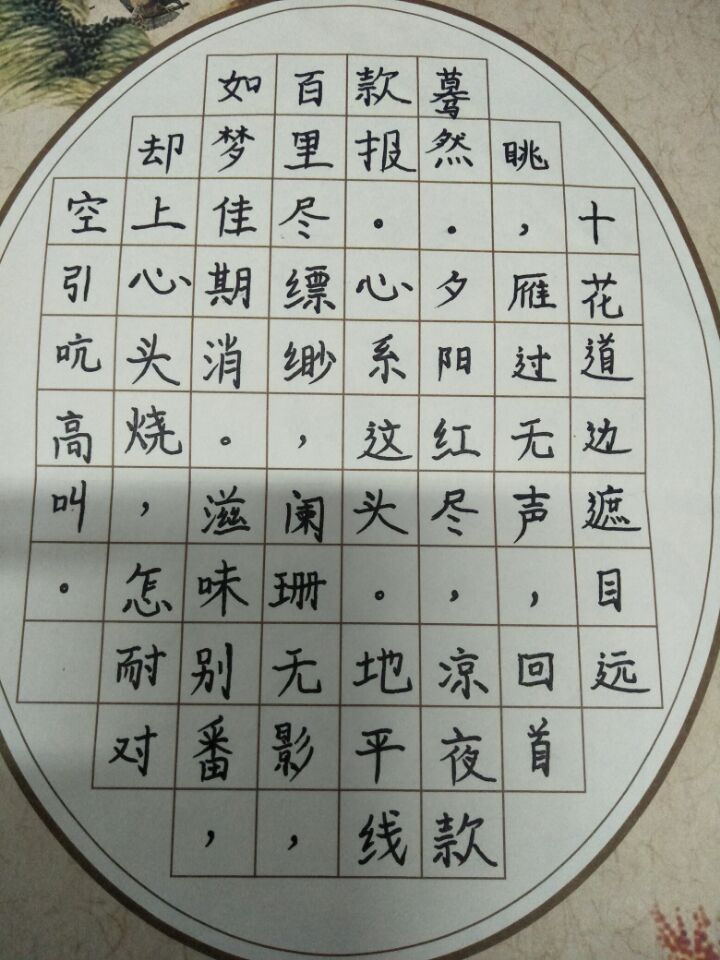 十花道边遮目远
眺，雁过无声，回首
蓦然。夕阳红尽，凉夜款
款报。心系这头。地平线
百里尽缥缈，阑珊无影，
如梦佳期消。滋味别番，
却上心头烧，怎耐对
空引吭高叫。